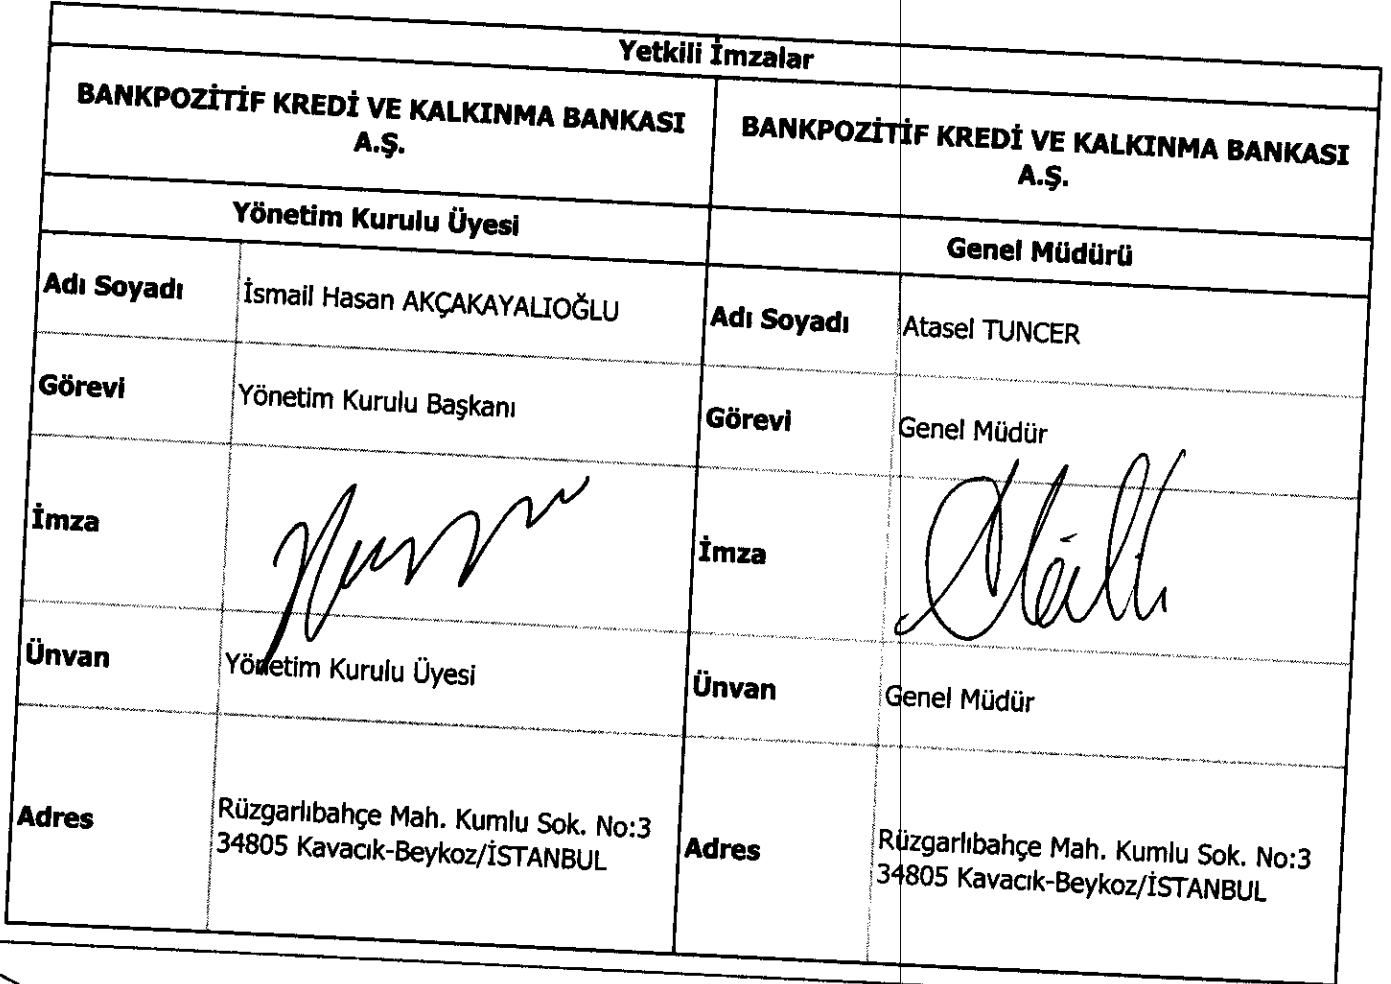 Yetkili İmzalar
BANKPOZİTİF KREDİ VE KALKINMA BANKASI
A.Ş.
BANKPOZİTİF KREDİ VE KALKINMA BANKASI
A.Ş.
Yönetim Kurulu Üyesi
Genel Müdürü
Adı Soyadı
İsmail Hasan AKÇAKAYALIOĞLU
Adı Soyadı
Atasel TUNCER
Görevi
Yönetim Kurulu Başkanı
Görevi
Genel Müdür
İmza
İmza
Ünvan
Yönetim Kurulu Üyesi
Ünvan
Genel Müdür
Adres
Rüzgarlıbahçe Mah. Kumlu Sok. No:3
34805 Kavacık-Beykoz/İSTANBUL
Adres
Rüzgarlıbahçe Mah. Kumlu Sok. No:3
34805 Kavacık-Beykoz/İSTANBUL